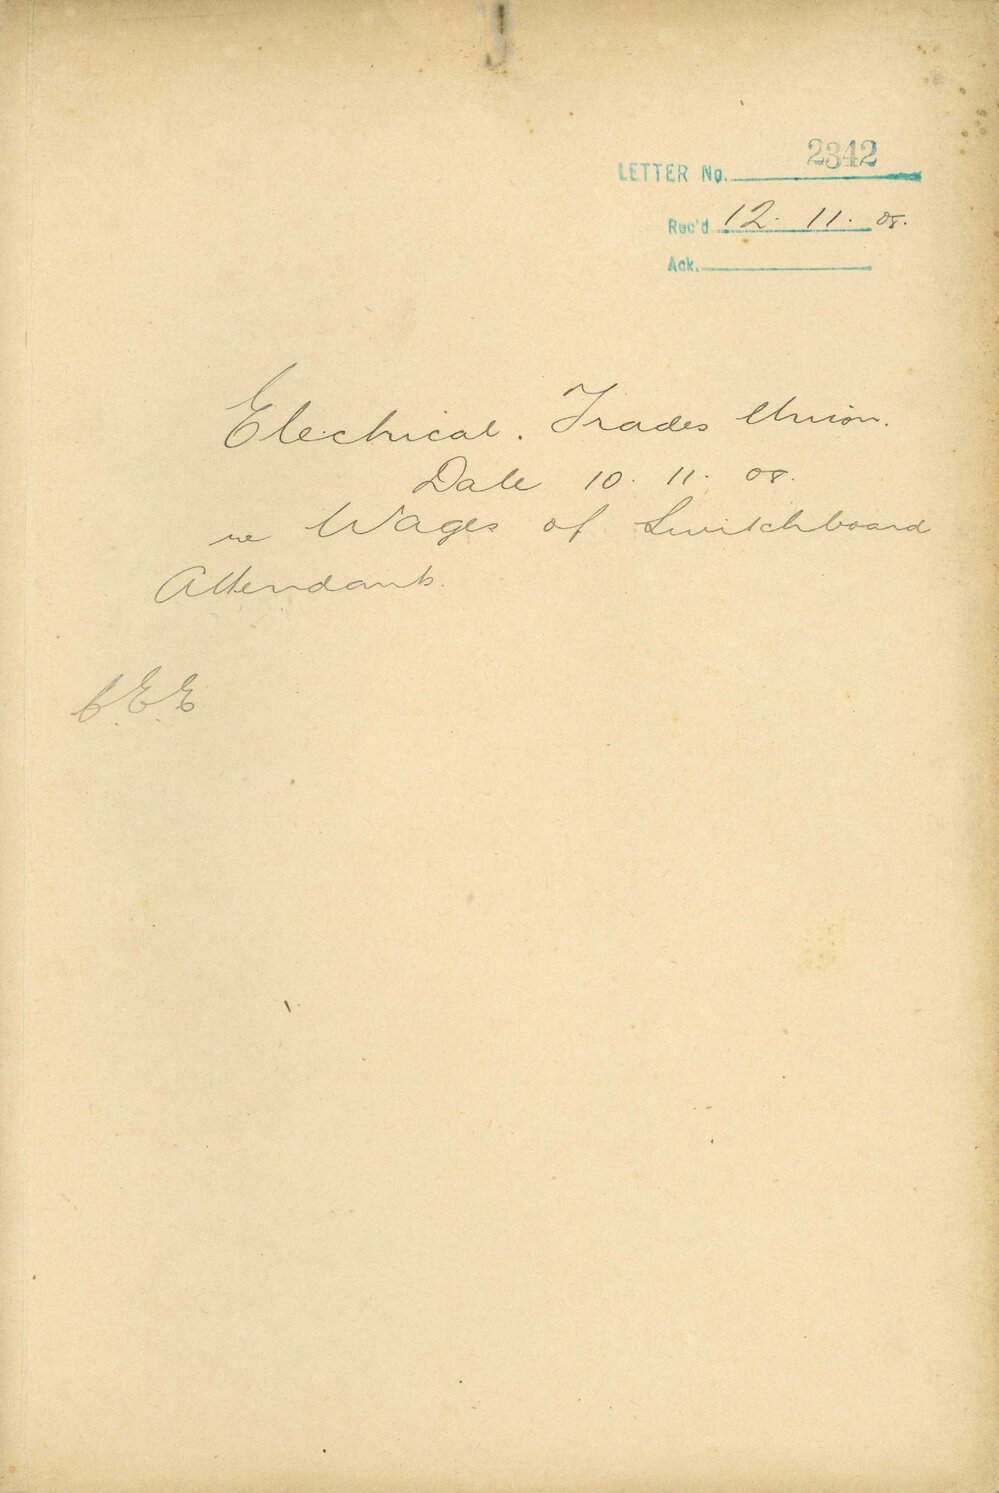 LETTER No. 2342
Rec'd 12. 11. 08.
Ack.
Electrical. Trades Union.
Date 10. 11. 08.
re Wages of Switchboard
Attendants.
C.E.E